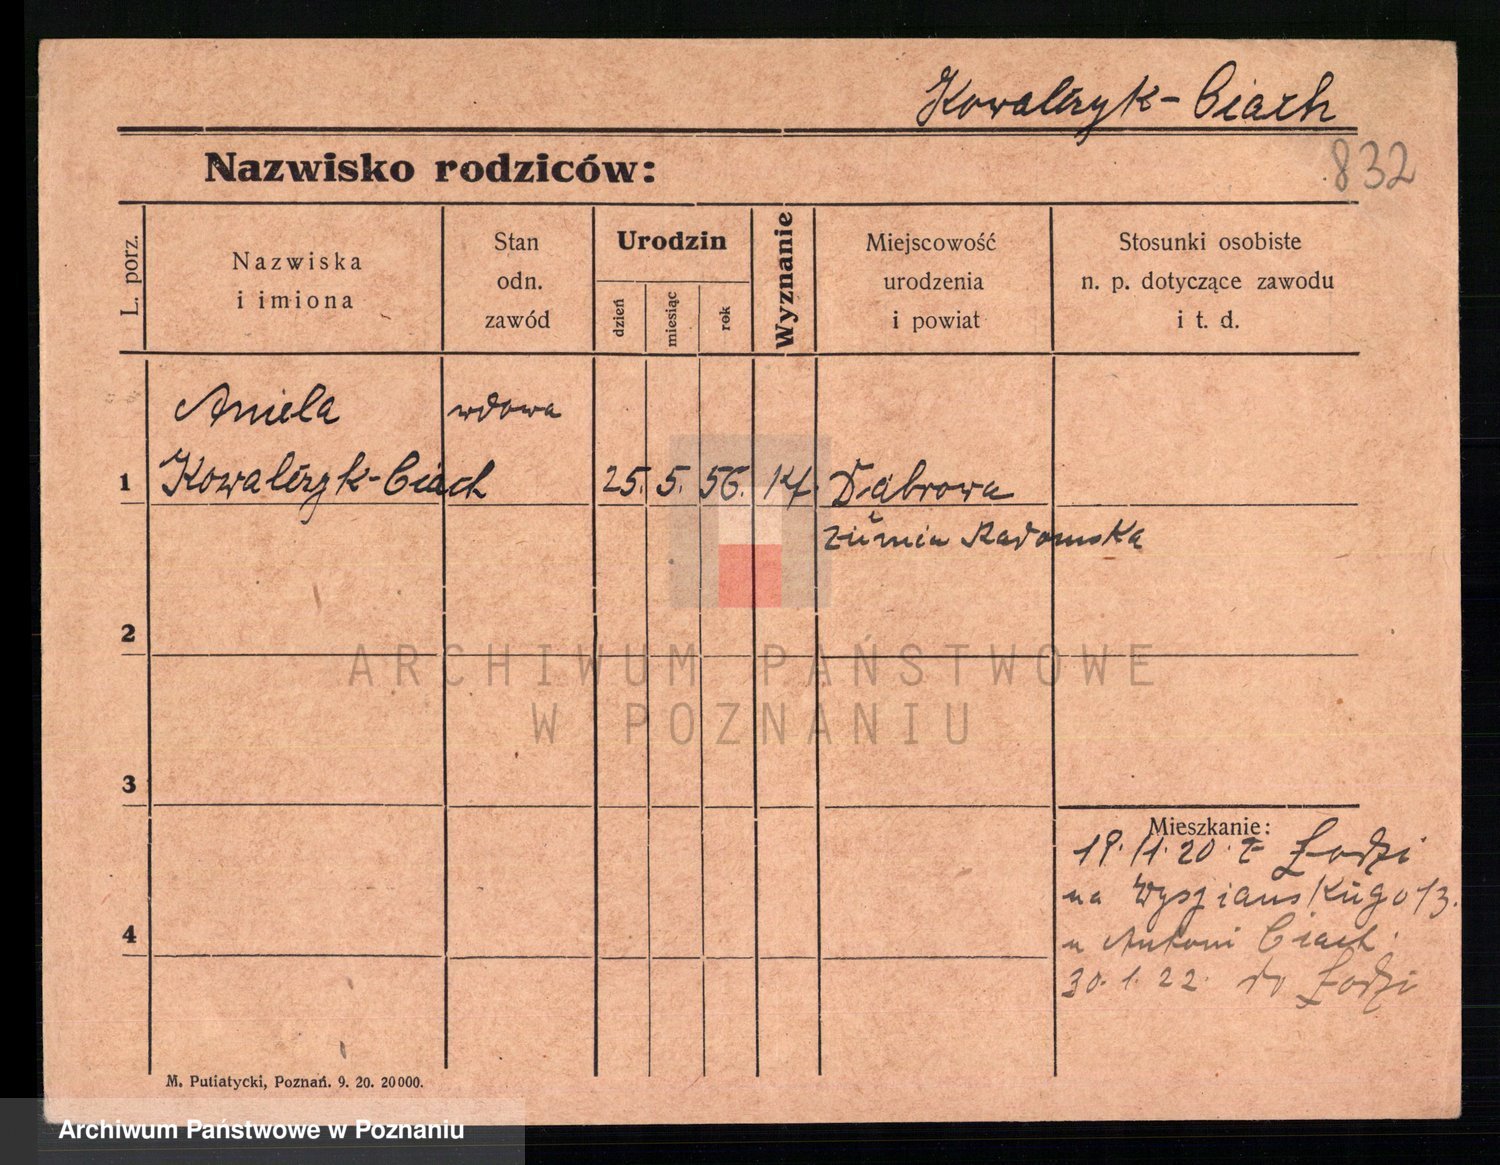 Kowalczyk-Ciach
832
Nazwisko rodziców:
L. porz.
Nazwiska
i imiona
Stan
odn.
zawód
Urodzin
dzień
miesiąc
rok
Wyznanie
Miejscowość
urodzenia
i powiat
Stosunki osobiste
n. p. dotyczące zawodu
i t. d.
Aniela wdowa
1 Kowalczyk-Ciach 25. 5. 56. kt. Dąbrowa
ziemia Radomska
2
ARCHIWUM PAŃSTWOWE
W POZNANIU
3
Mieszkanie:
19. 11. 20. z Łodzi
na Wyspiańskiego 13.
u Antoni Ciach.
4
30. 1. 22. do Łodzi
M. Putiatycki, Poznań. 9. 20. 20000.
Archiwum Państwowe w Poznaniu